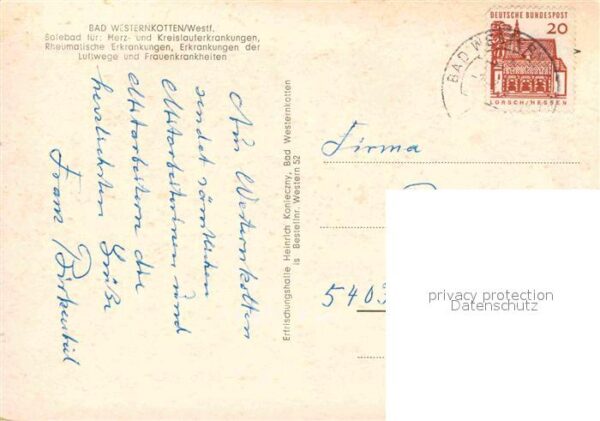 BAD WESTERNKOTTEN/Westf.
Solebad für: Herz- und Kreislauferkrankungen,
Rheumatische Erkrankungen, Erkrankungen der
Luftwege und Frauenkrankheiten
Aus Westernkotten
sendet sämtlichen
Mitarbeiterinnen und
Mitarbeitern die
herzlichsten Grüße
Franz
Erfrischungshalle Heinrich Konieczny, Bad Westernkotten
is Bestellnr. Western 52
DEUTSCHE BUNDESPOST
20
LORSCH/HESSEN
BAD WESTERN
Firma
5403
privacy protection
Datenschutz